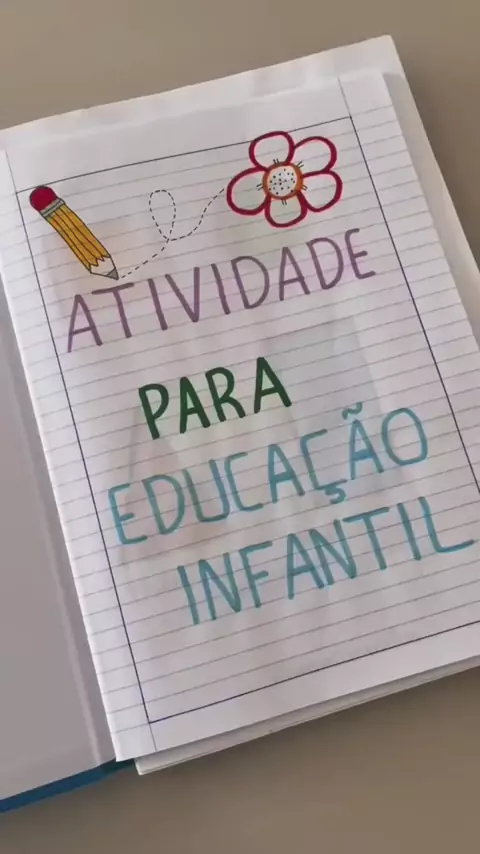 ATIVIDADE
PARA
EDUCAÇÃO
INFANTIL